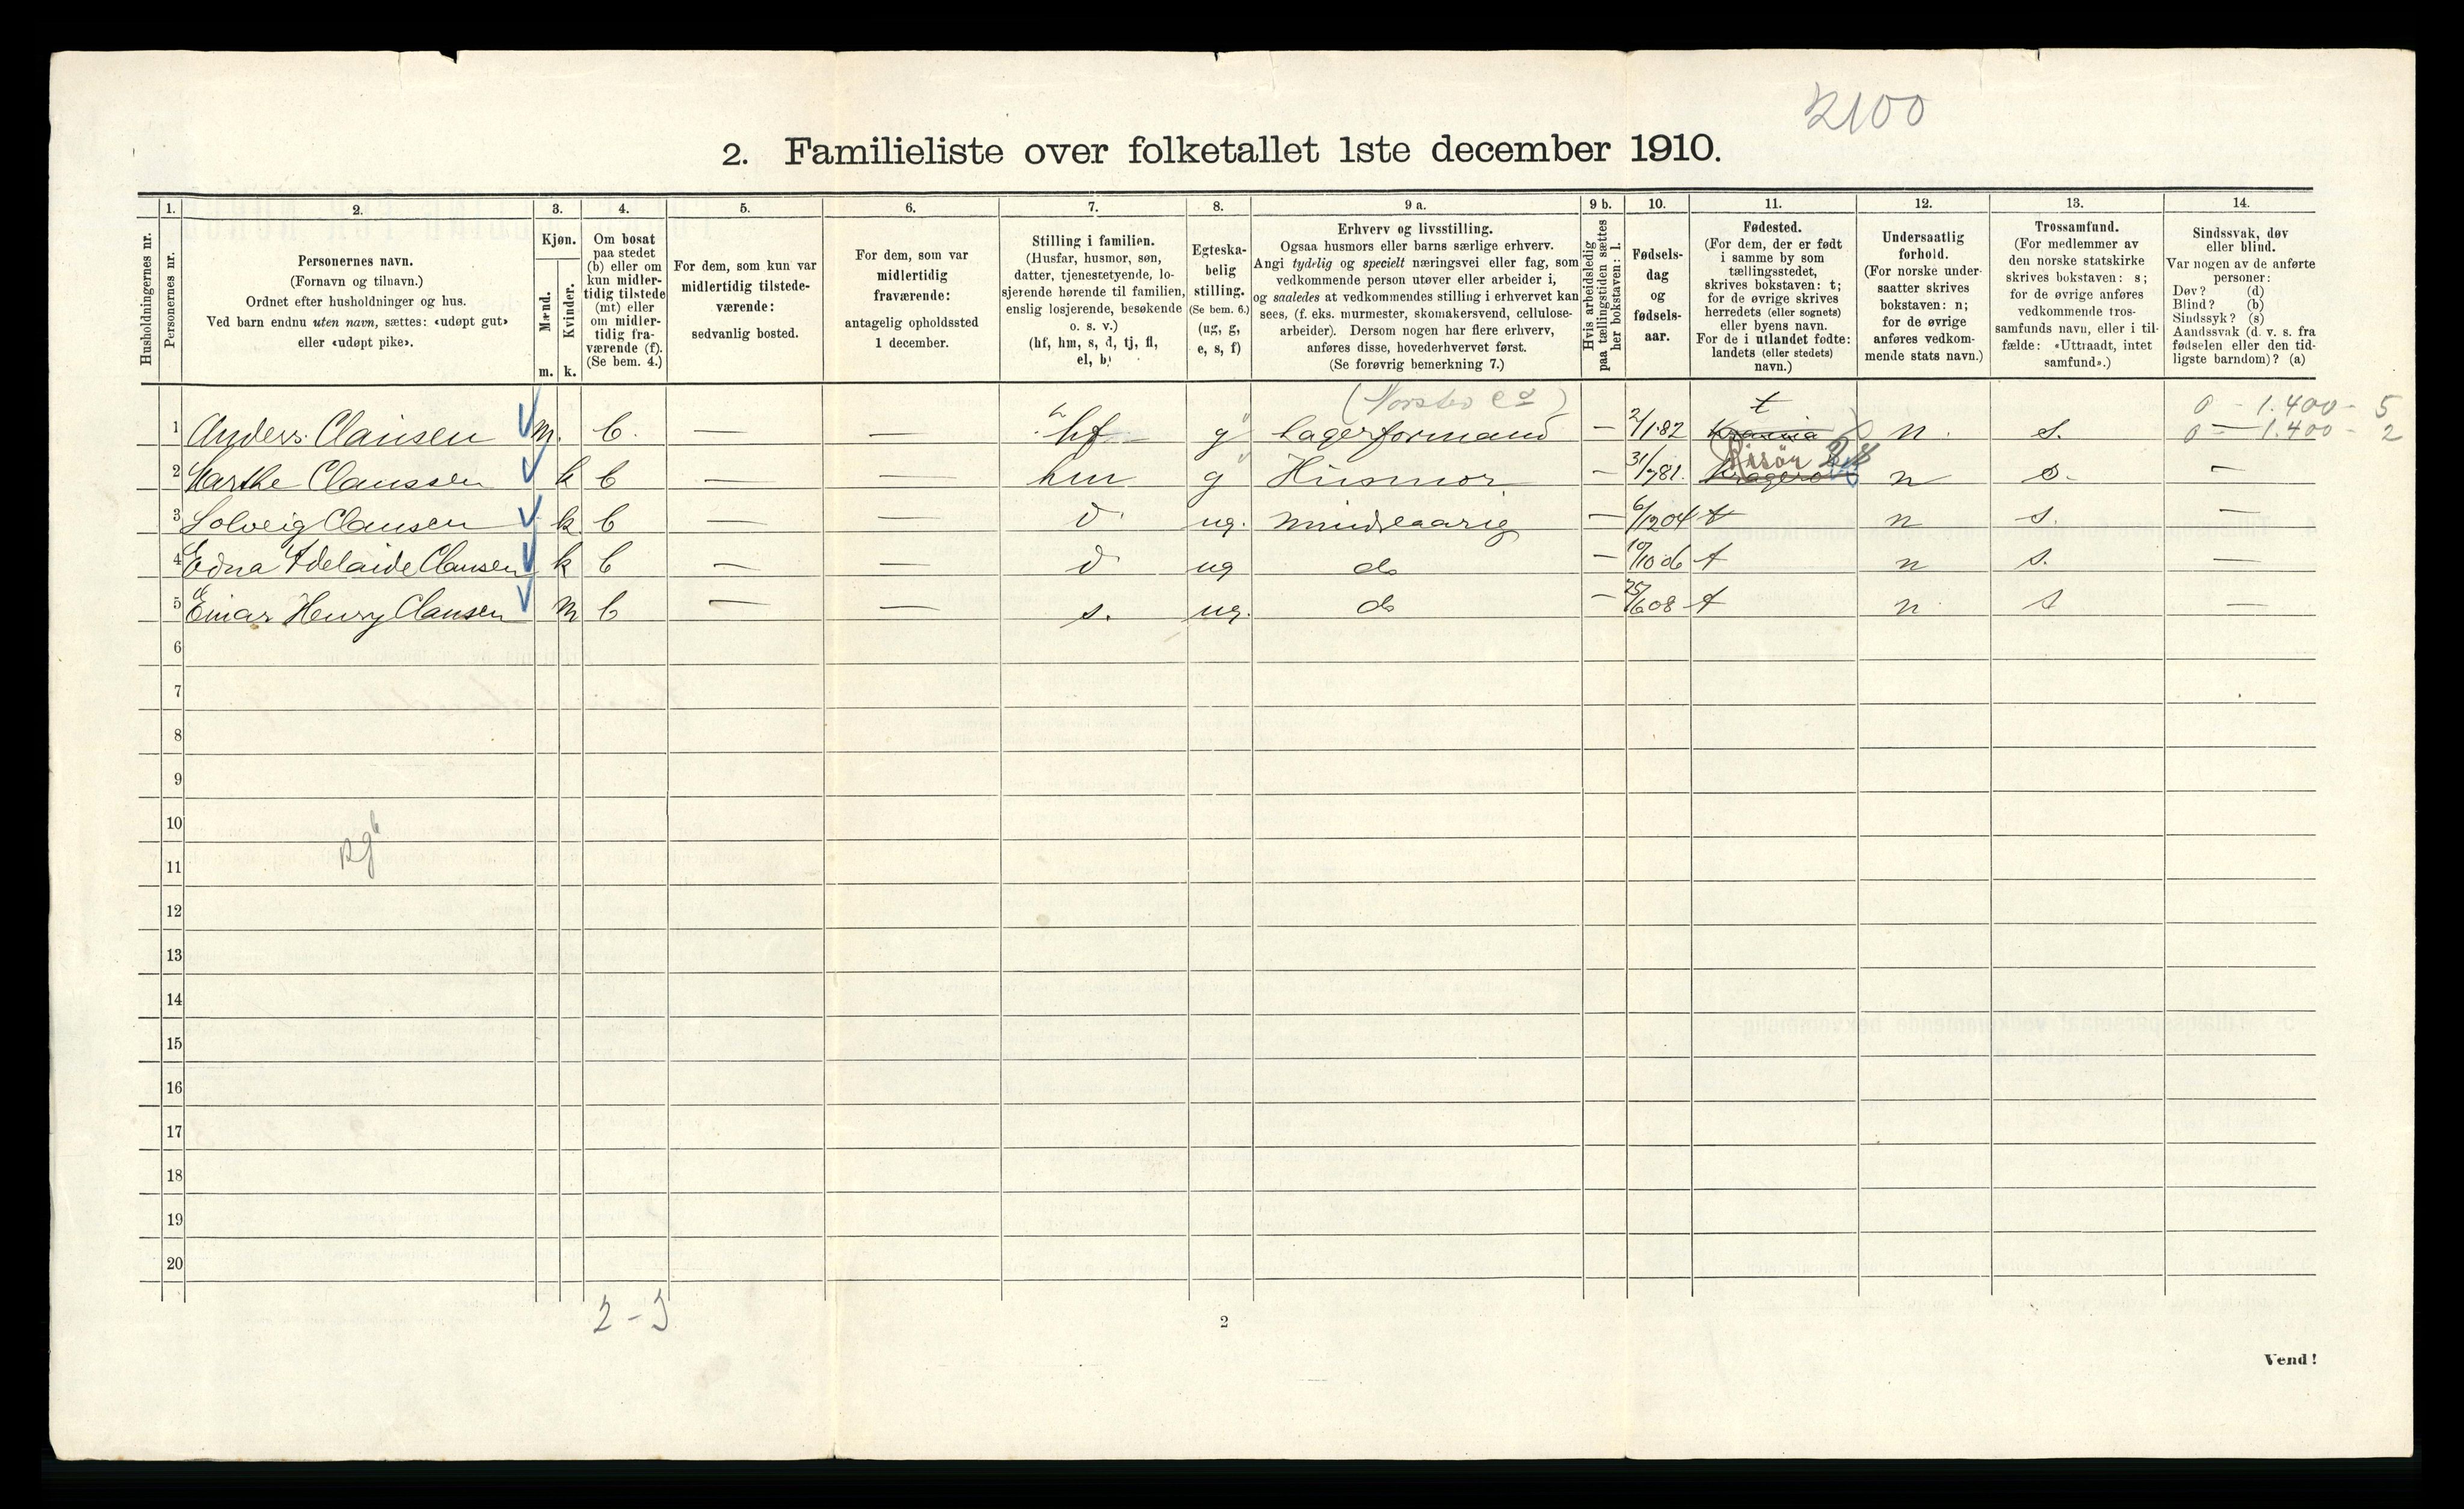 2100
2. Familieliste over folketallet 1ste december 1910.
1. 2. 3. 4. 5. 6. 7. 8. 9 a. 9 b. 10. 11. 12. 13. 14.
Husholdningernes nr.
Personernes nr.
Personernes navn.
(Fornavn og tilnavn.)
Ordnet efter husholdninger og hus.
Ved barn endnu uten navn, sættes: «udøpt gut»
eller «udøpt pike».
Kjøn.
Mænd.
Kvinder.
m. k.
Om bosat
paa stedet
(b) eller om
kun midler-
tidig tilstede
(mt) eller
om midler-
tidig fra-
værende (f).
(Se bem. 4.)
For dem, som kun var
midlertidig tilstede-
værende:
sedvanlig bosted.
For dem, som var
midlertidig
fraværende:
antagelig opholdssted
1 december.
Stilling i familien.
(Husfar, husmor, søn,
datter, tjenestetyende, lo-
sjerende hørende til familien,
enslig losjerende, besøkende
o. s. v.)
(hf, hm, s, d, tj, fl,
el, b)
Egteska-
belig
stilling.
(Se bem. 6.)
(ug, g,
e, s, f)
Erhverv og livsstilling.
Ogsaa husmors eller barns særlige erhverv.
Angi tydelig og specielt næringsvei eller fag, som
vedkommende person utøver eller arbeider i,
og saaledes at vedkommendes stilling i erhvervet kan
sees, (f. eks. murmester, skomakersvend, cellulose-
arbeider). Dersom nogen har flere erhverv,
anføres disse, hovederhvervet først.
(Se forøvrig bemerkning 7.)
Hvis arbeidsledig
paa tællingstiden sættes
her bokstaven: l.
Fødsels-
dag
og
fødsels-
aar.
Fødested.
(For dem, der er født
i samme by som
tællingsstedet,
skrives bokstaven: t;
for de øvrige skrives
herredets (eller sognets)
eller byens navn.
For de i utlandet fødte:
landets (eller stedets)
navn.)
Undersaatlig
forhold.
(For norske under-
saatter skrives
bokstaven: n;
for de øvrige
anføres vedkom-
mende stats navn.)
Trossamfund.
(For medlemmer av
den norske statskirke
skrives bokstaven: s;
for de øvrige anføres
vedkommende tros-
samfunds navn, eller i til-
fælde: «Uttraadt, intet
samfund».)
Sindssvak, døv
eller blind.
Var nogen av de anførte
personer:
Døv? (d)
Blind? (b)
Sindssyk? (s)
Aandssvak (d. v. s. fra
fødselen eller den tid-
ligste barndom)? (a)
t 0 - 1.400 - 5
1 Anders Clausen m. b. — — hf g Lagerformand — 2/1 82 Krania n. s. 0 — 1.400 - 2
Risør
2 Marthe Claussen k b — — hm g Husmor — 31/7 81. Kragerø n s. —
3 Solveig Clausen k b — — d ug. mindreaarig — 6/12 04 t n s. —
4 Edna Adelaide Clausen k b — — d ug do — 10/10 06 t n s. —
5 Einar Henry Clausen m b — — s. ug. do — 25/6 08 t n s —
6
7
8
9
10
11
12
13
14
15
16
17
18
19
20
2 - 3
2
Vend!